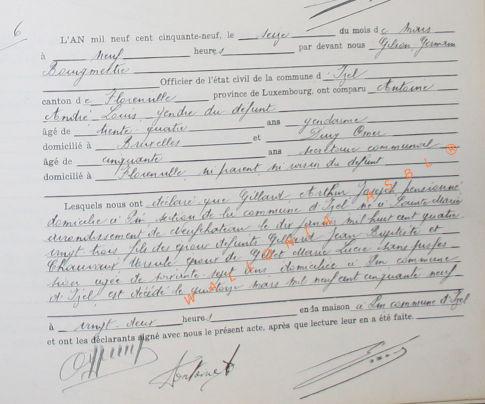 6
L'AN mil neuf cent cinquante-neuf, le seize du mois de Mars
à neuf heures par devant nous Gilson, Germain
Officier de l'état civil de la commune d'Izel
canton de Florenville province de Luxembourg, ont comparu Antoine
André Louis, gendre du défunt
âgé de trente quatre ans gendarme
domicilié à Bruxelles et Puy Omer
âgé de cinquante ans secrétaire communal
domicilié à Florenville, ni parent, ni voisin du défunt
Lesquels nous ont déclaré que Gillard, Arthur Joseph, pensionné
domicilié à Pin section de la commune d'Izel né à Sainte Marie
arrondissement de Neufchâteau le dix janvier mil huit cent quatre
vingt trois, fils des époux défunts Gillard Jean Baptiste et
Ursule, époux de Gillet Marie Lucie sans profes-
sion âgée de soixante sept ans domiciliée à Pin commune
d'Izel, est décédé le quatorze mars mil neuf cent cinquante neuf
à vingt deux heures en la maison à Pin commune d'Izel
et ont les déclarants signé avec nous le présent acte, après que lecture leur en a été faite.
Antoine
WALLONIA ASBL ®